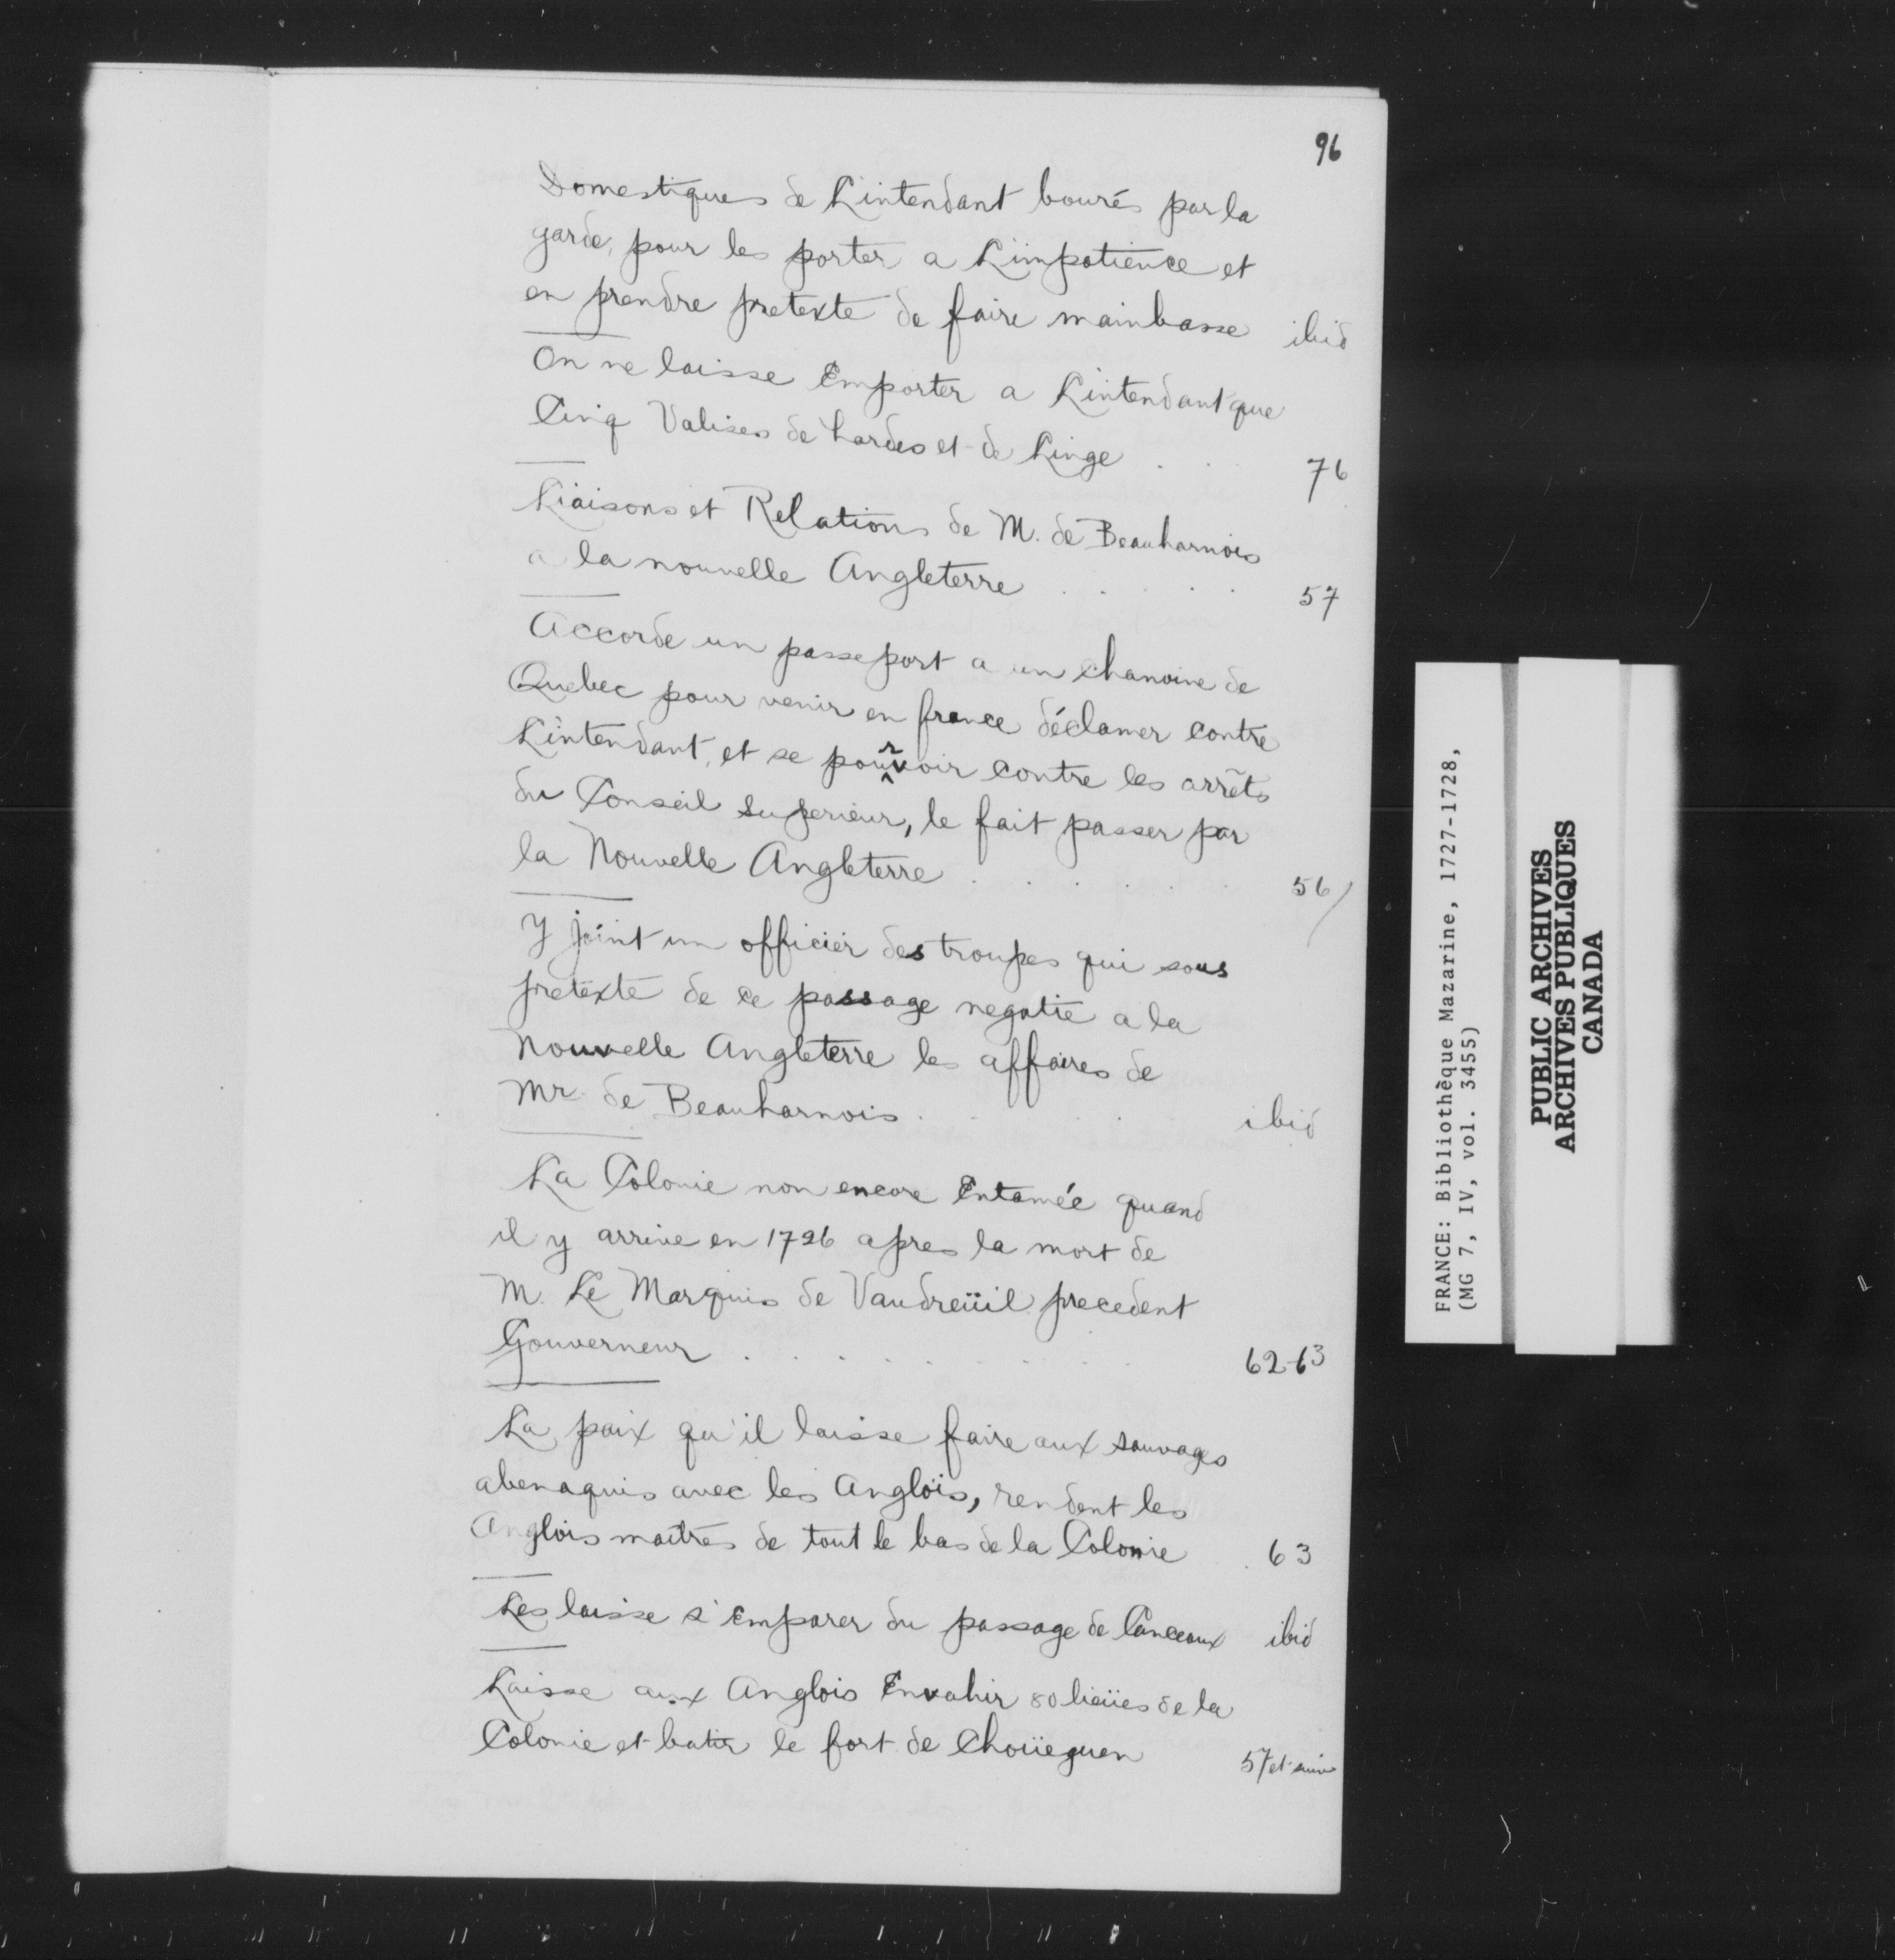 96
Domestiques de Lintendant bourés par la
garde, pour les porter a L'impatience et
en prendre pretexte de faire mainbasse ibid
On ne laisse Emporter a Lintendant que
Cinq Valises de hardes et de Linge . . 76
Liaisons et Relations de M. de Beauharnois
a la nouvelle Angleterre . . . . . 57
Accorde un passeport a un Chanoine de
Quebec pour venir en france déclamer contre
L'intendant, et se pourvoir contre les arrêts
du Conseil superieur, le fait passer par
la Nouvelle Angleterre . . . . . . 56/
Y joint un officier des troupes qui sous
pretexte de ce passage negotie a la
Nouvelle Angleterre les affaires de
Mr. de Beauharnois . . . . ibid
La Colonie non encore Entamée quand
il y arrive en 1726 apres la mort de
M. Le Marquis de Vaudreüil precedent
Gouverneur . . . . . . . . 62-63
La paix qu'il laisse faire aux sauvages
abenaquis avec les Anglois, rendent les
Anglois maitres de tout le bas de la Colonie . 63
Les laisse s'Emparer du passage de Canceaux ibid
Laisse aux Anglois Envahir 80 lieües de la
Colonie et batir le fort de Choüeguen 57 et suiv
FRANCE: Bibliothèque Mazarine, 1727-1728,
(MG 7, IV, vol. 3455)
PUBLIC ARCHIVES
ARCHIVES PUBLIQUES
CANADA